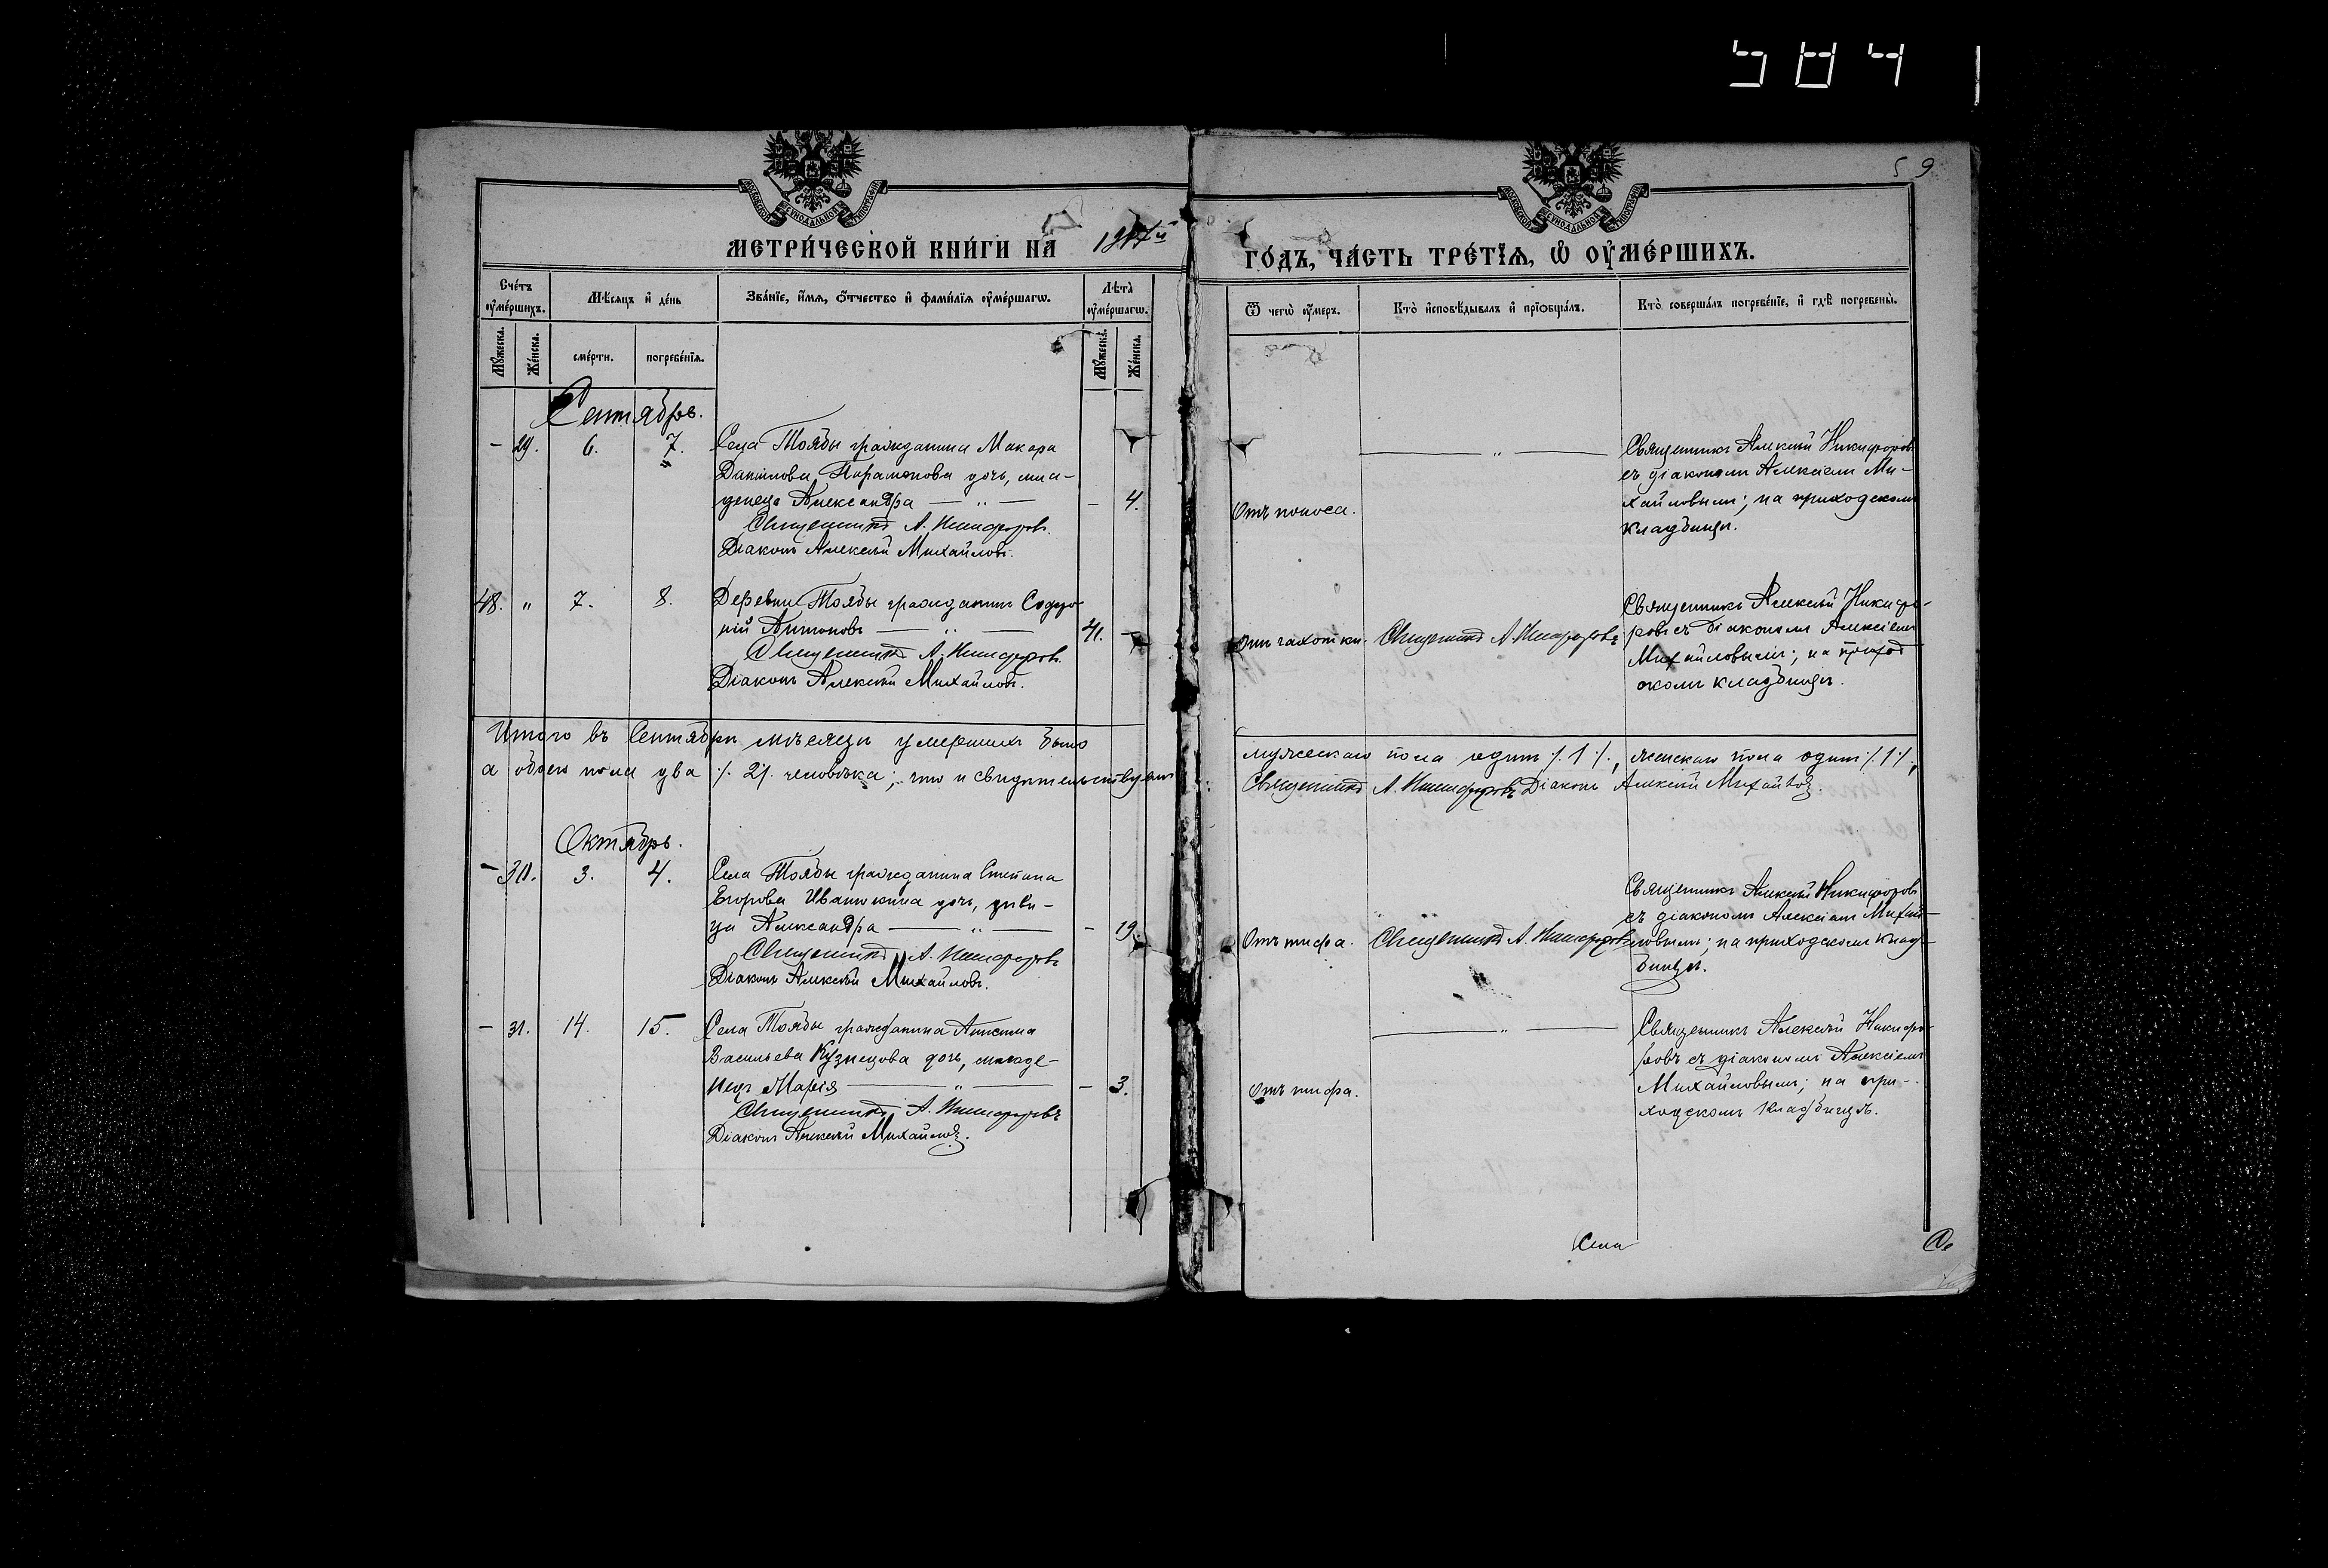 5 9
МОСКОВСКОЙ СѴНОДАЛЬНОЙ ТИПОГРАФІИ
МОСКОВСКОЙ СѴНОДАЛЬНОЙ ТИПОГРАФІИ
МЕТРИ́ЧЕСКОЙ КНИ́ГИ НА 1917й
ГО́ДЪ, ЧА́СТЬ ТРЕ́ТЇѦ, Ѡ҆ ОУ҆МЕ́РШИХЪ.
Сче́тъ оу҆ме́ршихъ.
Мѣ́сяцъ и҆ де́нь
Зва́нїе, и҆́мѧ, ѻ҆́тчество и҆ фами́лїѧ оу҆ме́ршагѡ.
Лѣ́та оу҆ме́ршагѡ.
Ѿ чегѡ̀ оу҆́меръ.
Кто̀ и҆сповѣ́дывалъ и҆ прїѡбща́лъ.
Кто̀ соверша́лъ погребе́нїе, и҆ гдѣ̀ погребены̀.
Мꙋ́жеска.
Же́нска.
сме́рти.
погребе́нїѧ.
Мꙋ́жеска.
Же́нска.
Сентябрь.
- 29. 6. 7. Села Тоябы гражданина Макара
Данилова Парамонова дочь, мла-
денецъ Александра — " — - 4.
Священникъ А. Никифоровъ.
Діаконъ Алексѣй Михайловъ.
Отъ поноса.
— " —
Священникъ Алексѣй Никифоровъ
съ діакономъ Алексіемъ Ми-
хайловымъ; на приходскомъ
кладбищѣ.
48. " 7. 8. Деревни Тоябы гражданинъ
Антоновъ — " — 41. -
Священникъ А. Никифоровъ.
Діаконъ Алексѣй Михайловъ.
Отъ чахотки. Священникъ А. Никифоровъ
Священникъ Алексѣй Никифо-
ровъ съ діакономъ Алексіемъ
Михайловымъ; на приход
скомъ кладбищѣ.
Итого въ Сентябрѣ мѣсяцѣ умершихъ было
мужескаго пола одинъ /.1./, женскаго пола одинъ /.1./,
а обоего пола два /.2/. человѣка; что и свидѣтельствуемъ
Священникъ А. Никифоровъ Діаконъ Алексѣй Михайловъ.
Октябрь.
- 30. 3. 4. Села Тоябы гражданина Степана
Егорова Иванюкина дочь, дѣви-
ца Александра — " — - 19.
Священникъ А. Никифоровъ
Діаконъ Алексѣй Михайловъ.
Отъ тифа. Священникъ А. Никифоровъ
Священникъ Алексѣй Никифоровъ
съ діакономъ Алексіемъ Михай-
ловымъ; на приходскомъ клад-
бищѣ.
- 31. 14. 15. Села Тоябы гражданина Анисима
Васильева Кузнецова дочь, младе-
нецъ Марія — " — - 3.
Священникъ А. Никифоровъ
Діаконъ Алексѣй Михайловъ.
Отъ тифа.
— " —
Священникъ Алексѣй Никифо-
ровъ съ діакономъ Алексіемъ
Михайловымъ; на при-
ходскомъ кладбищѣ.
Села